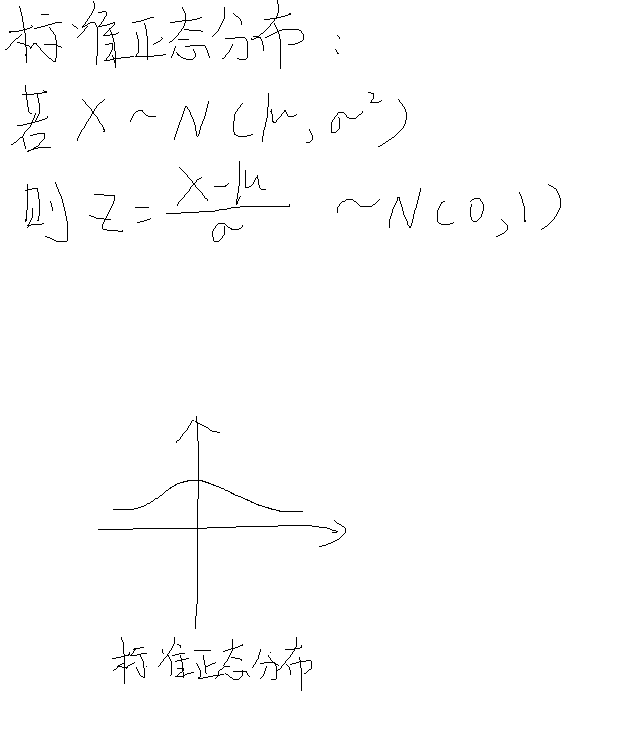 标准正态分布：
若 X ~ N(μ, σ²)
则 Z = (X-μ)/σ ~ N(0,1)
标准正态分布